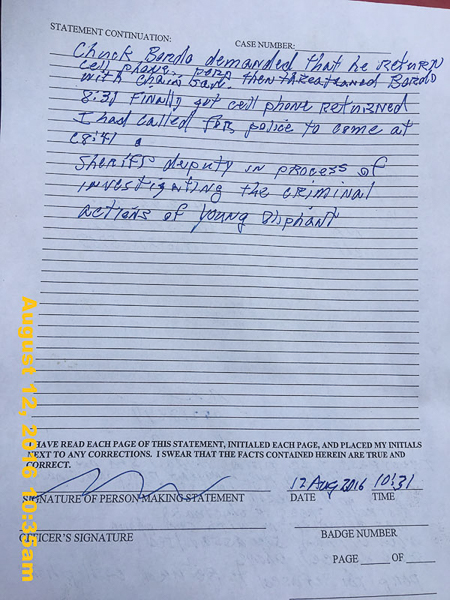 STATEMENT CONTINUATION:
CASE NUMBER:
Chuck Bordo demanded that he return
cell phone. then threatened Bordo
with chain saw.
8:31 Finally got cell phone returned
I had called for police to come at
08:41
Sheriff deputy in process of
investigating the criminal
actions of young Oliphant
I HAVE READ EACH PAGE OF THIS STATEMENT, INITIALED EACH PAGE, AND PLACED MY INITIALS
NEXT TO ANY CORRECTIONS. I SWEAR THAT THE FACTS CONTAINED HEREIN ARE TRUE AND
CORRECT.
12 Aug 2016 10:31
SIGNATURE OF PERSON MAKING STATEMENT
DATE
TIME
OFFICER'S SIGNATURE
BADGE NUMBER
PAGE ____ OF ____
August 12, 2016 10:35am